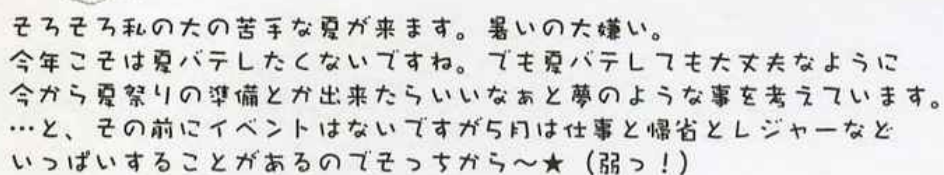 そろそろ私の大の苦手な夏が来ます。暑いの大嫌い。
今年こそは夏バテしたくないですね。でも夏バテしても大丈夫なように
今から夏祭りの準備とか出来たらいいなぁと夢のような事を考えています。
…と、その前にイベントはないですが5月は仕事と帰省とレジャーなど
いっぱいすることがあるのでそっちから～★(弱っ!)